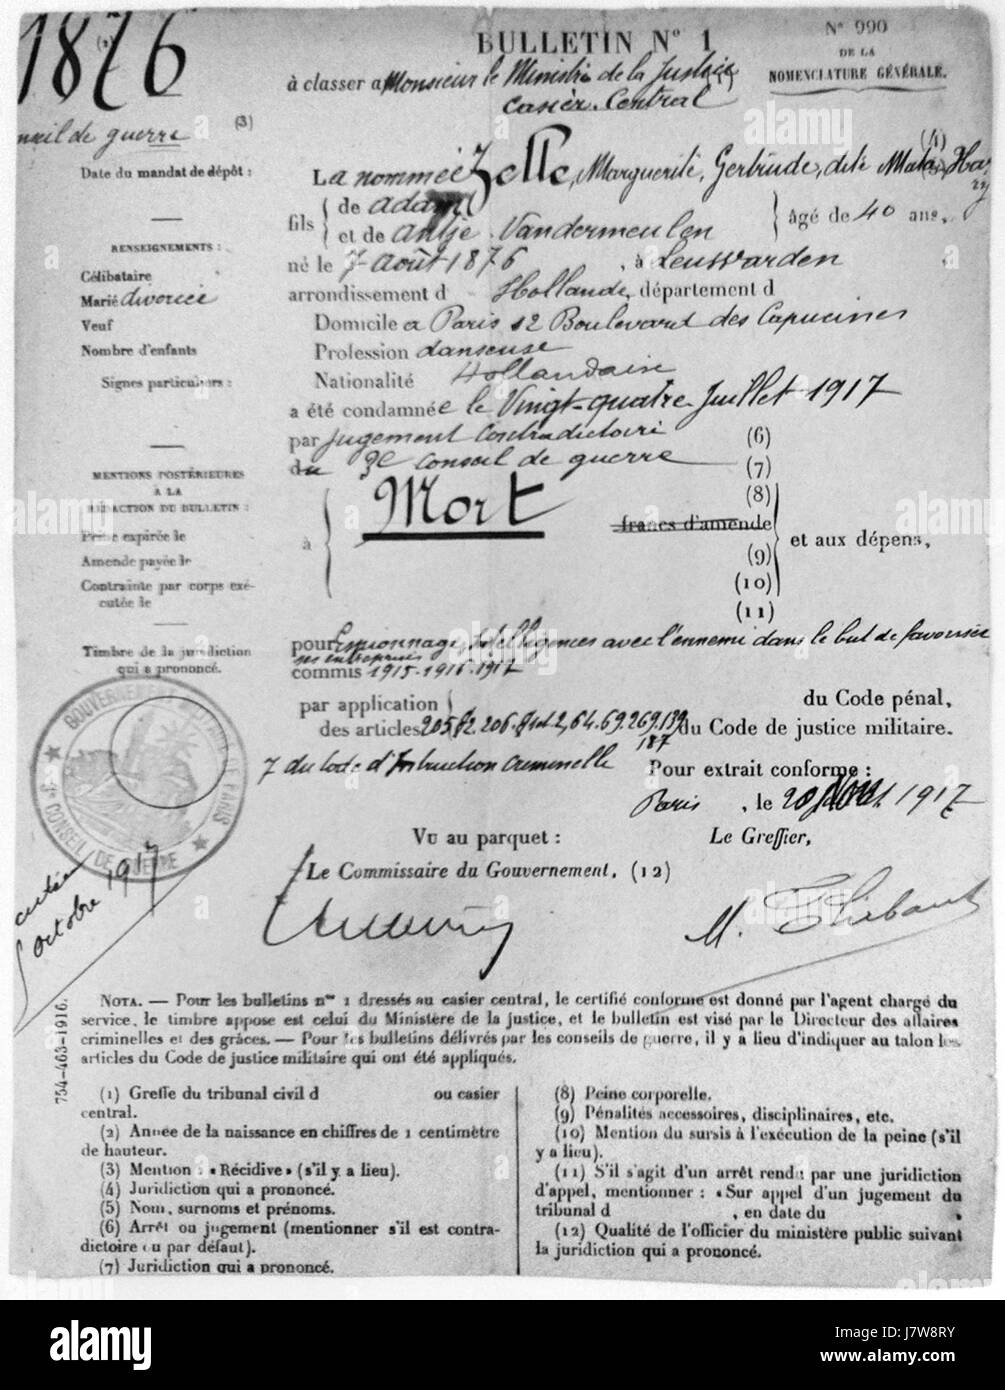 1876
BULLETIN N° 1
N° 990
DE LA
NOMENCLATURE GÉNÉRALE.
à classer a Monsieur le Ministre de la Justice
Casier Central
(2)
(3)
(4)
nseil de guerre
Date du mandat de dépôt :
RENSEIGNEMENTS :
Célibataire
Marié divorcée
Veuf
Nombre d'enfants
Signes particuliers :
MENTIONS POSTÉRIEURES
À LA
RÉDACTION DU BULLETIN :
Peine expirée le
Amende payée le
Contrainte par corps exé-
cutée le
Timbre de la juridiction
qui a prononcé.
La nommée Zelle, Marguerite, Gertrude, dite Mata Hary
fils
de Adam
et de Antje Vandermeulen
âgé de 40 ans,
né le 7 août 1876, à Leuswarden
arrondissement d Hollande, département d
Domicile a Paris 12 Boulevard des Capucines
Profession danseuse
Nationalité Hollandaise
a été condamnée le Vingt-quatre Juillet 1917
par jugement contradictoire (6)
du 3e Conseil de guerre (7)
à Mort
(8)
francs d'amende
(9)
(10)
et aux dépens,
(11)
pour Espionnage, Intelligences avec l'ennemi dans le but de favoriser
ses entreprises
commis 1915-1916-1917
par application
des articles 205 §2. 206. §1et2, 64. 69. 269. 139
187
du Code pénal,
du Code de justice militaire.
7 du Code d'Instruction Criminelle
Pour extrait conforme :
Paris, le 20 1917
Vu au parquet :
Le Commissaire du Gouvernement, (12)
Le Greffier,
M. Thibaut
GOUVERNEMENT MILITAIRE DE PARIS
3e CONSEIL DE GUERRE
octobre 1917
754-463-1916.
NOTA. — Pour les bulletins nos 1 dressés au casier central, le certifié conforme est donné par l'agent chargé du
service, le timbre apposé est celui du Ministère de la justice, et le bulletin est visé par le Directeur des affaires
criminelles et des grâces. — Pour les bulletins délivrés par les conseils de guerre, il y a lieu d'indiquer au talon les
articles du Code de justice militaire qui ont été appliqués.
(1) Greffe du tribunal civil d ou casier
central.
(2) Année de la naissance en chiffres de 1 centimètre
de hauteur.
(3) Mention : « Récidive » (s'il y a lieu).
(4) Juridiction qui a prononcé.
(5) Nom, surnoms et prénoms.
(6) Arrêt ou jugement (mentionner s'il est contra-
dictoire ou par défaut).
(7) Juridiction qui a prononcé.
(8) Peine corporelle.
(9) Pénalités accessoires, disciplinaires, etc.
(10) Mention du sursis à l'exécution de la peine (s'il
y a lieu).
(11) S'il s'agit d'un arrêt rendu par une juridiction
d'appel, mentionner : « Sur appel d'un jugement du
tribunal d , en date du .
(12) Qualité de l'officier du ministère public suivant
la juridiction qui a prononcé.
alamy
Image ID: J7W8RY
www.alamy.com